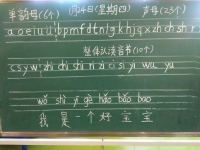 单韵母(6个) 1月24日(星期四) 声母(23个)
a o e i u ü b p m f d t n l g k h j q x zh ch sh r
整体认读音节(10个)
c s y w zhi chi shi ri zi ci si yi wu yu
wǒ shì yí gè hǎo bǎo bao
我是一个好宝宝